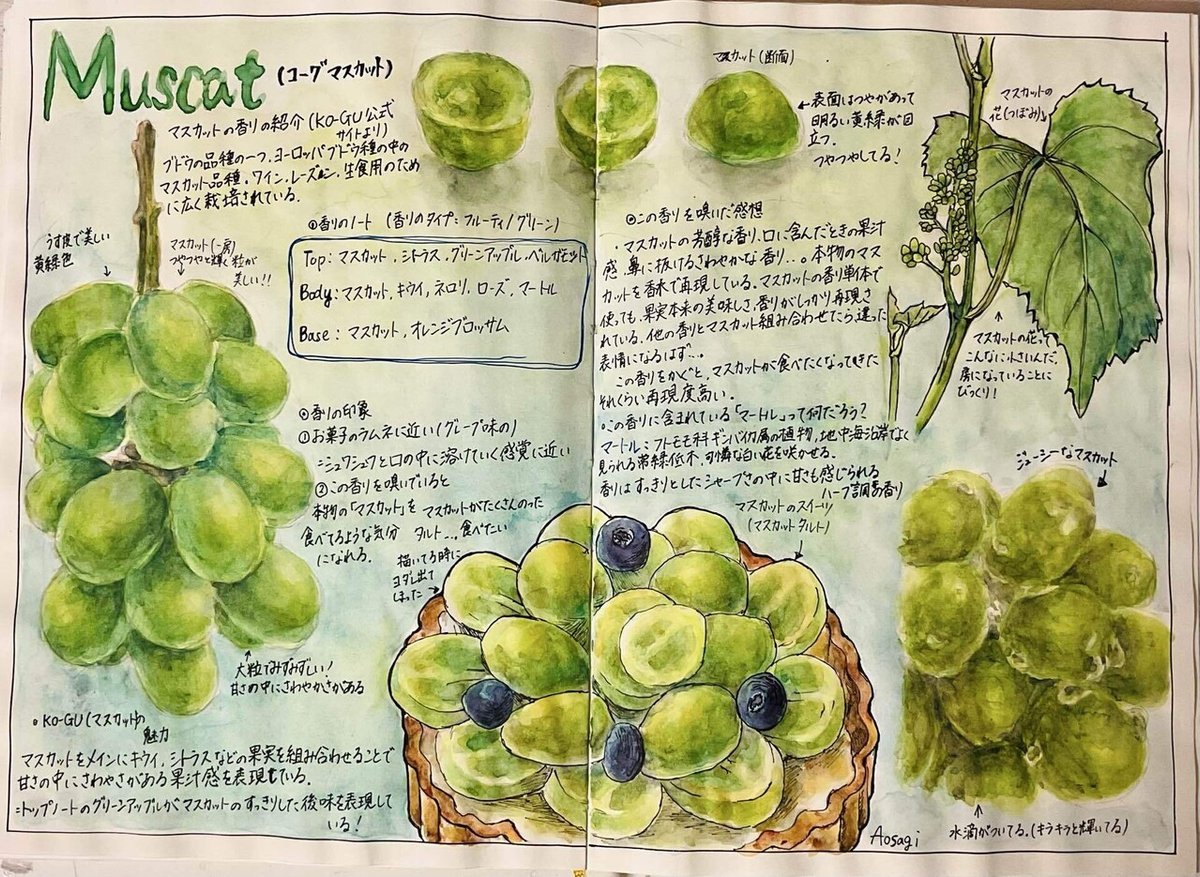 Muscat (コーグマスカット)
マスカットの香りの紹介(KO-GU公式
サイトより)
ブドウの品種の一つ、ヨーロッパブドウ種の中の
マスカット品種。ワイン、レーズン、生食用のため
に広く栽培されている。
うす皮で美しい
黄緑色
マスカット(一房)
つやつやと輝く粒が
美しい!!
◎香りのノート (香りのタイプ:フルーティ/グリーン)
Top:マスカット、シトラス、グリーンアップル、ベルガモット
Body:マスカット、キウイ、ネロリ、ローズ、マートル
Base:マスカット、オレンジブロッサム
◎香りの印象
①お菓子のラムネに近い(グレープ味の)
=シュワシュワと口の中に溶けていく感覚に近い
②この香りを嗅いでいると
本物の「マスカット」を
食べてるような気分
になれる。
マスカットがたくさんのった
タルト…食べたい
描いてる時に
ヨダレ出て
しまった
大粒でみずみずしい!
甘さの中にさわやかさがある
◦KO-GU(マスカット)の
魅力
マスカットをメインにキウイ、シトラスなどの果実を組み合わせることで
甘さの中にさわやさがある果汁感を表現している。
=トップノートのグリーンアップルがマスカットのすっきりした後味を表現して
いる!
マスカット(断面)
表面はつやがあって
明るい黄緑が目
立つ。
つやつやしてる!
マスカットの
花(つぼみ)
◎この香りを嗅いだ感想
・マスカットの芳醇な香り、口に含んだときの果汁
感、鼻に抜けるさわやかな香り…。本物のマス
カットを香水で再現している。マスカットの香り単体で
使っても、果実本来の美味しさ、香りがしっかり再現さ
れている。他の香りとマスカット組み合わせたら違った
表情になるはず…。
この香りをかぐと、マスカットが食べたくなってきた
それくらい再現度高い。
◦この香りに含まれている「マートル」って何だろう?
マートル:フトモモ科ギンバイカ属の植物、地中海沿岸でよく
見られる常緑低木、可憐な白い花を咲かせる。
香りはすっきりとしたシャープさの中に甘さも感じられる
ハーブ調の香り
マスカットの花って
こんなに小さいんだ。
房になっていることに
びっくり!
マスカットのスイーツ
(マスカットタルト)
ジューシーなマスカット
水滴がついてる。(キラキラと輝いてる)
Aosagi